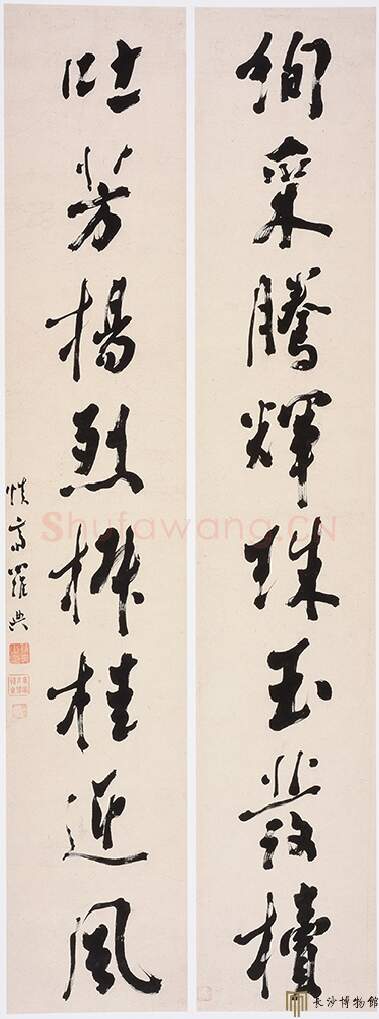 絢采騰輝珠玉發櫝
吐芳揚烈椒桂迎風
慎齋羅典
Shufawang.CN
長沙博物館